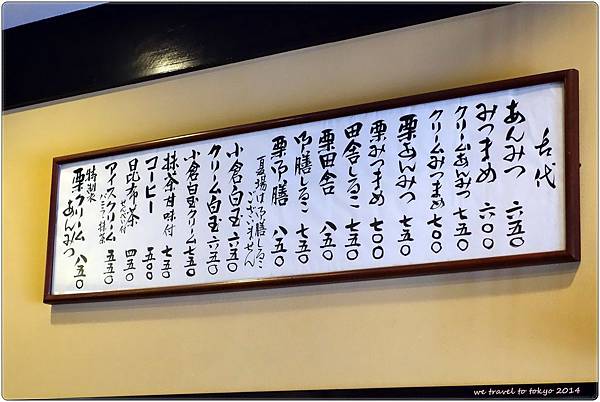 古代
あんみつ 六五〇
みつまめ 六〇〇
クリームあんみつ 七五〇
クリームみつまめ 七〇〇
栗あんみつ 七五〇
栗みつまめ 七〇〇
田舎しるこ 七五〇
栗田舎 八五〇
御膳しるこ 七五〇
栗御膳 八五〇
夏場は御膳しるこ
ございません
小倉白玉 六五〇
クリーム白玉 六五〇
小倉白玉クリーム 七五〇
抹茶 甘味付 七五〇
コーヒー 五〇〇
昆布茶 せんべい付 四五〇
アイスクリーム バニラ 抹茶 五五〇
特製
栗クリームあんみつ 八五〇
we travel to tokyo 2014